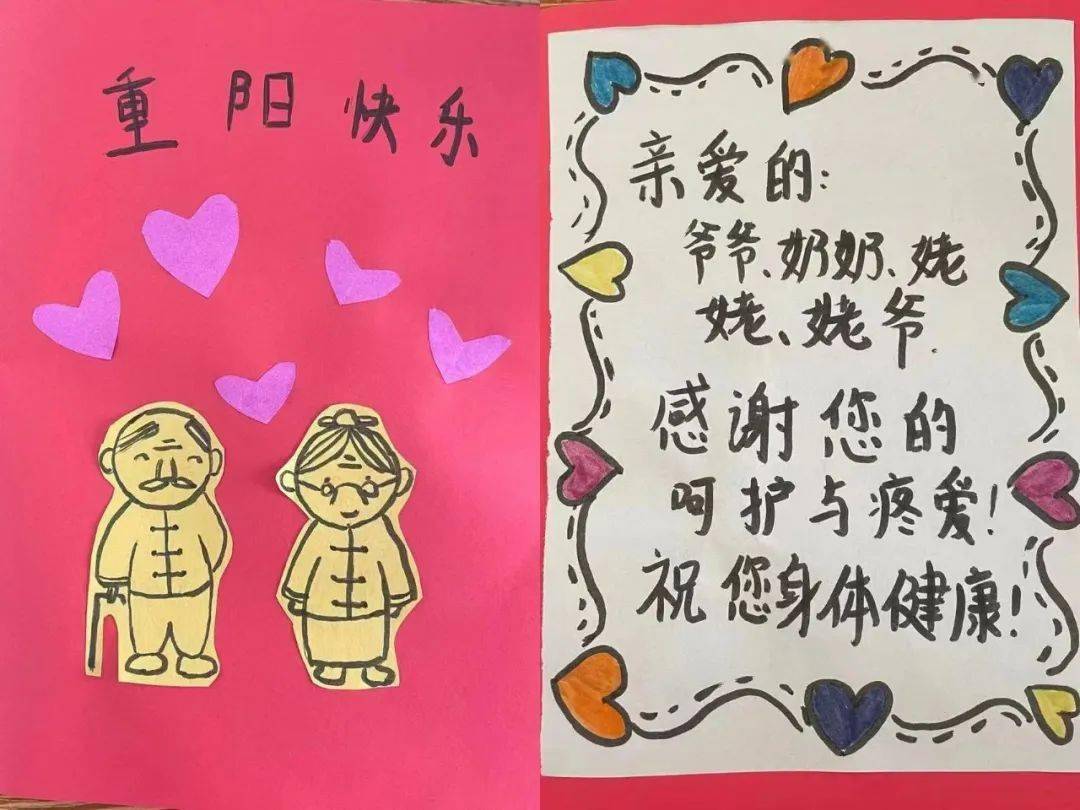 重阳快乐
亲爱的:
爷爷、奶奶、姥
姥、姥爷.
感谢您的
呵护与疼爱!
祝您身体健康!